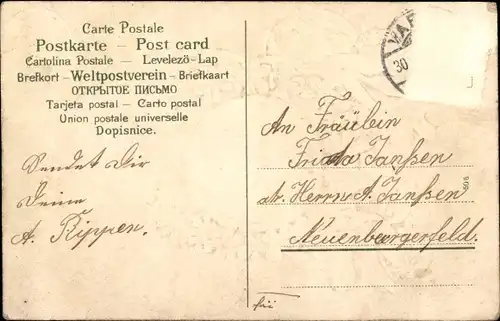 Carte Postale
Postkarte — Post card
Cartolina Postale — Levelezö-Lap
Brefkort — Weltpostverein — Briefkaart
ОТКРЫТОЕ ПИСЬМО
Tarjeta postal — Carto postal
Union postale universelle
Dopisnice.
Sendet Dir
Deine
A. Rippen.
VAR
30
An Fräulein
Frida Janßen
adr. Herrn A. Janßen
Neuenburgerfeld.